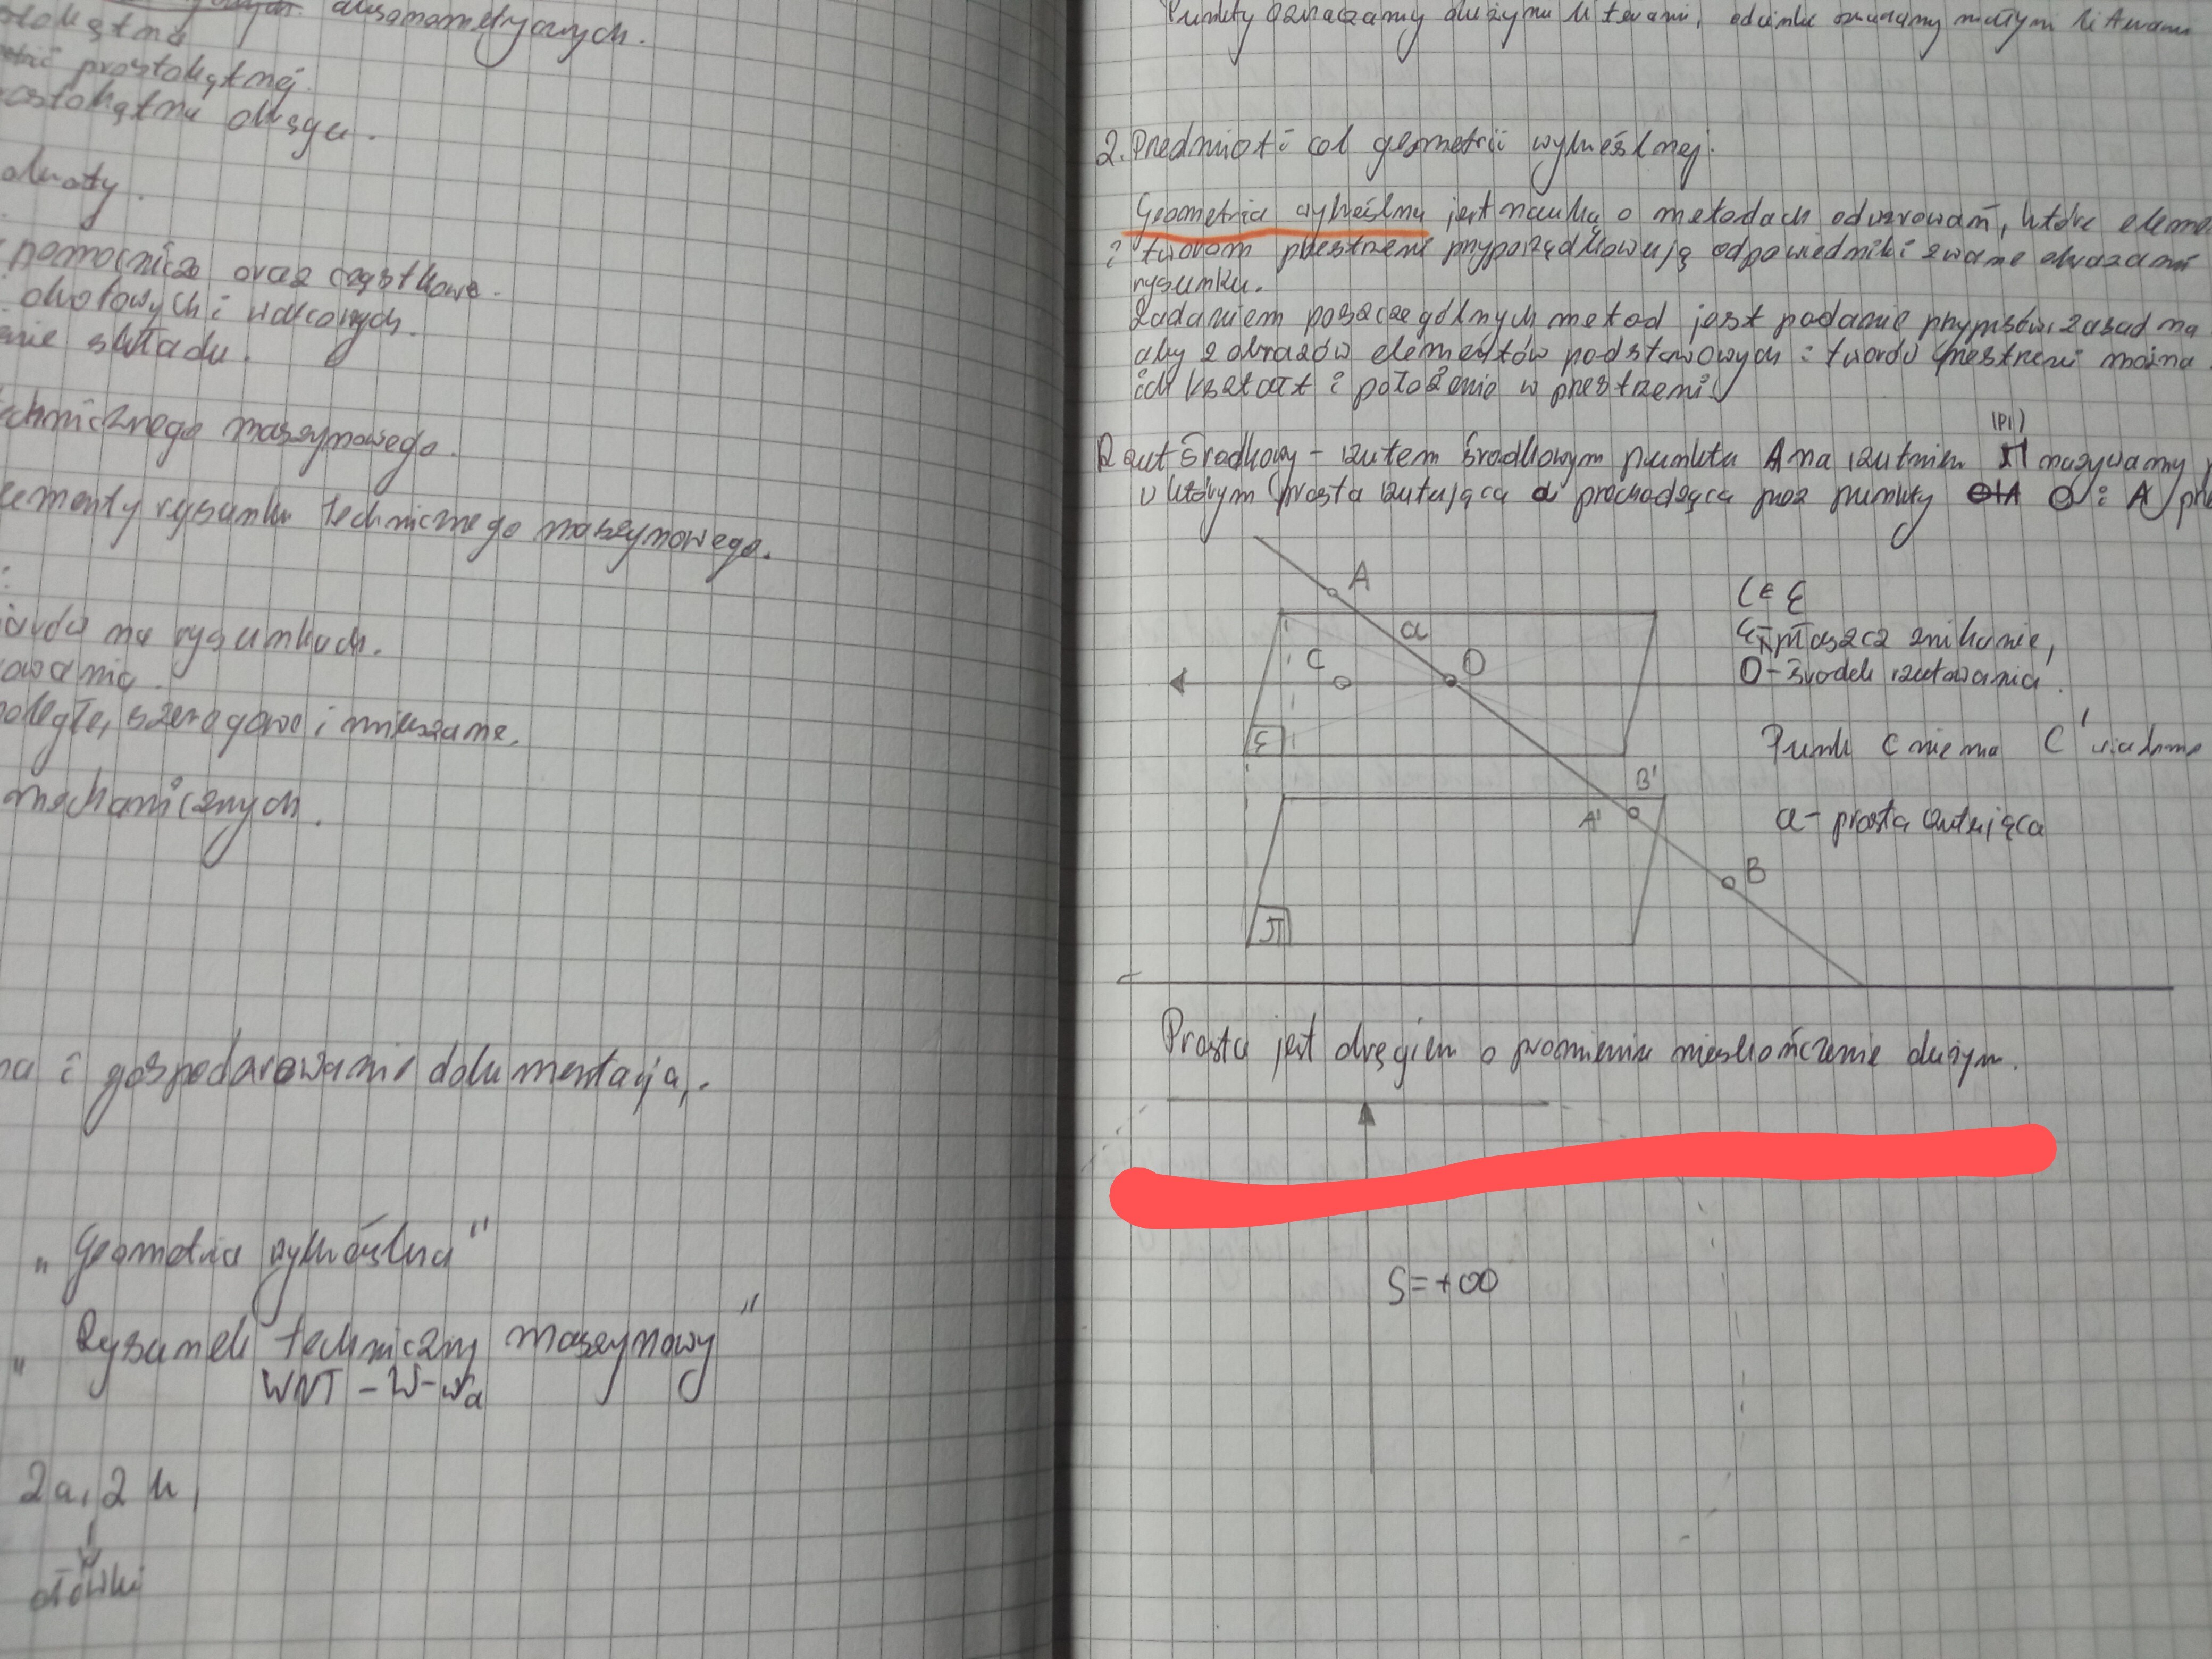 aksonometrycznych.
prostokątnej.
okręgu.
pomocnicze oraz cząstkowe.
obrotowych i walcowych.
składu.
technicznego maszynowego.
elementy rysunku technicznego maszynowego.
na rysunkach.
szeregowe i mieszane.
mechanicznych.
i gospodarowanie dokumentacją.
„Geometria wykreślna”
„Rysunek techniczny maszynowy”
WNT - W-wa
2a, 2h,
ołówki
Punkty oznaczamy dużymi literami, odcinki oznaczamy małymi literami
2. Przedmiot i cel geometrii wykreślnej.
Geometria wykreślna jest nauką o metodach odwzorowań, które
i tworom przestrzeni przyporządkowują odpowiedniki zwane obrazami
rysunku.
Zadaniem poszczególnych metod jest podanie przepisów i zasad na
aby z obrazów elementów podstawowych i tworów przestrzeni można
ich kształt i położenie w przestrzeni.
(PI)
Rzut środkowy - rzutem środkowym punktu A na rzutnien π nazywamy
w którym prosta rzutująca a przechodząca przez punkty O i A
A
a
C
O
ε
B'
A'
B
π
C ∈ ε
ε - płaszcz znikania,
O - środek rzutowania.
Punk C nie ma C'
a - prosta rzutująca
Prosta jest okręgiem o promieniu nieskończenie dużym.
S=+∞